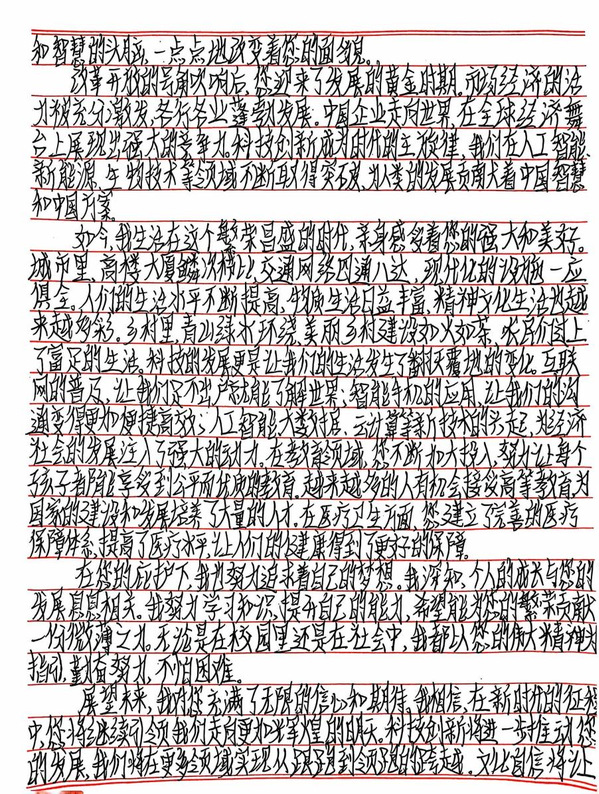 和智慧的头脑,一点点地改变着您的面貌。
改革开放的号角吹响后,您迎来了发展的黄金时期。市场经济的活
力被充分激发,各行各业蓬勃发展。中国企业走向世界,在全球经济舞
台上展现出强大的竞争力。科技创新成为时代的主旋律,我们在人工智能、
新能源、生物技术等领域不断取得突破,为人类的发展贡献着中国智慧
和中国方案。
如今,我生活在这个繁荣昌盛的时代,亲身感受着您的强大和美好。
城市里,高楼大厦鳞次栉比,交通网络四通八达,现代化的设施一应
俱全。人们的生活水平不断提高,物质生活日益丰富,精神文化生活也越
来越多彩。乡村里,青山绿水环绕,美丽乡村建设如火如荼,农民们过上
了富足的生活。科技的发展更是让我们的生活发生了翻天覆地的变化,互联
网的普及,让我们足不出户就能了解世界;智能手机的应用,让我们的沟
通变得更加便捷高效;人工智能、大数据、云计算等新技术的兴起,为经济
社会的发展注入了强大的动力。在教育领域,您不断加大投入,努力让每个
孩子都能享受到公平而优质的教育。越来越多的人有机会接受高等教育,为
国家的建设和发展培养了大量的人才。在医疗卫生方面,您建立了完善的医疗
保障体系,提高了医疗水平,让人们的健康得到了更好的保障。
在您的庇护下,我也努力追求着自己的梦想。我深知,个人的成长与您的
发展息息相关。我努力学习知识,提升自己的能力,希望能为您的繁荣贡献
一份微薄之力。无论是在校园里还是在社会中,我都以您的伟大精神为
指引,勤奋努力,不怕困难。
展望未来,我对您充满了无限的信心和期待。我相信,在新时代的征程
中,您将继续引领我们走向更加辉煌的明天。科技创新将进一步推动您
的发展,我们将在更多领域实现从跟跑到领跑的跨越。文化自信将让